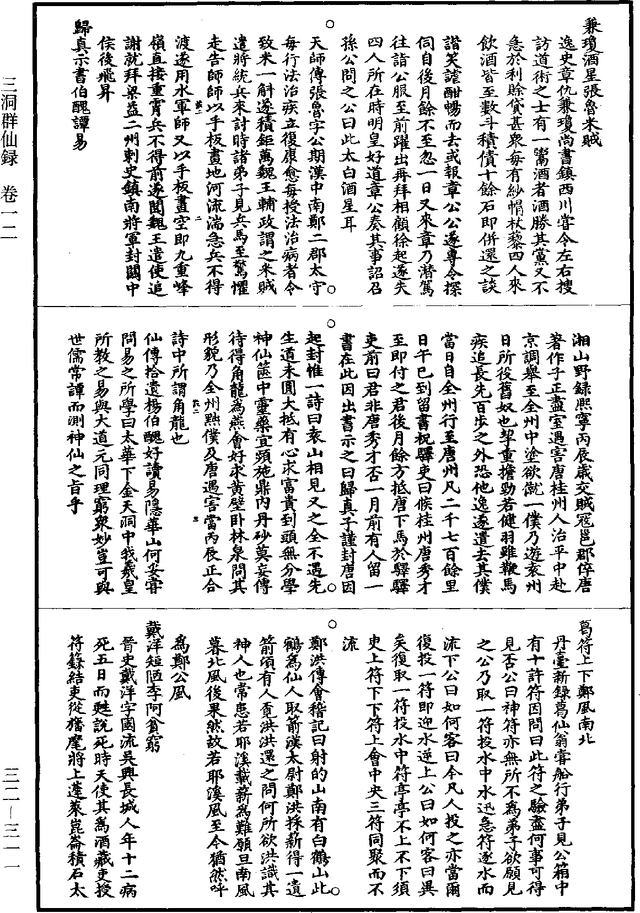 三洞群仙録 卷一二
三二—三一一
兼瓊酒星張魯米賊
逸史章仇兼瓊尚書鎮西川嘗令左右搜
訪道術之士有一鬻酒者酒勝其黨又不
急於利賒貸甚衆每有紗帽杖藜四人來
飲酒皆至數斗積債十餘石即併還之談
諧笑謔酣暢而去或報章公公遂專令探
伺自後月餘不至忽一日又來章乃潛駕
往詣公服至前躍出再拜相顧徐起遂失
四人所在時明皇好道章公奏其事詔召
孫公問之公曰此太白酒星耳
天師傳張魯字公期漢中南鄭二郡太守
每行法治疾立復康愈每授法治病者令
致米一斛遂積鉅萬魏王輔政謂之米賊
遣將統兵來討時諸弟子見兵馬至驚懼
走告師師以手板畫地河流湍急兵不得
渡遂用水軍師又以手板畫空即九重峰
嶺直接重霄兵不得前遂聞魏王遣使追
謝就拜梁益二州刺史鎮南將軍封閬中
侯後飛昇
歸真示書伯醜譚易
湘山野録熙寧丙辰歲交賊冦邕郡倅唐
著作子正盡室遇害唐桂州人治平中赴
京調舉至全州中塗欲僦一僕乃遊袁州
日所役舊奴也挈重擔勁若健羽雖鞭馬
疾追長先百步之外恐他逸遂遣去其僕
當日自全州行至唐州凡二千七百餘里
日午已到留書祝驛吏曰候桂州唐秀才
至即付之君後月餘方抵唐下馬於驛驛
吏前曰君非唐秀才否一月前有人留一
書在此因出書示之曰歸真子謹封唐因
起封惟一詩曰袁山相見又之全不遇先
生道未圓大抵有心求富貴到頭無分學
神仙篋中靈藥宜頻施鼎内丹砂莫妄傳
待得角龍為燕會好求黄壁卧林泉問其
形貌乃全州㸃僕及唐遇害當丙辰正合
詩中所謂角龍也
仙傳拾遺楊伯醜好讀易隱華山何妥嘗
問易之所學曰太華下金天洞中我羲皇
所教之易與大道元同理窮衆妙豈可與
世儒常譚而測神仙之旨乎
葛符上下鄭風南北
丹臺新録葛仙翁嘗船行弟子見公箱中
有十許符因問曰此符之驗盡何事可得
見否公曰神符亦無所不為弟子欲願見
之公乃取一符投水中水迅急符逐水而
流下公曰如何客曰今凡人投之亦當爾
復投一符即迎水逆上公曰如何客曰異
矣復取一符投水中符亭亭不上不下須
臾上符下下符上會中央三符同聚而不
流
鄭洪傳會稽記曰射的山南有白鶴山此
鶴為仙人取箭漢太尉鄭洪採薪得一遺
箭頃有人覔洪洪還之問何所欲洪識其
神人也常患若耶溪載薪為難願旦南風
暮北風後果然故若耶溪風至今猶然呼
為鄭公風
戴洋短陋李阿貧窮
晉史戴洋字國流吳興長城人年十二病
死五日而甦說死時天使其為酒藏吏授
符籙結吏從旛麾將上蓬萊崑崙積石太